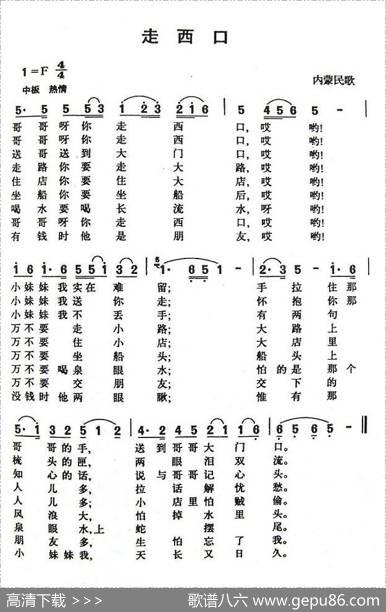 走西口
1=F 4/4
中板 热情
内蒙民歌
5· 5 5 5 5 3 1 2 3 2 1 6 5 4 5 6 5 -
哥哥呀你走西口,哎哟!
哥哥呀你走西口,哎哟!
送送到大门口,哎哟!
走路你要走大路,哎哟!
住店你要住大店,哎哟!
坐船你要坐船后,哎哟!
喝水要喝长流水,呀哟!
哥哥呀你走西口,哎哟!
有钱时他是朋友,哎哟!
1 6 1· 6 5 5 1 3 2 1· 6 5 - 2· 3 5 1 6
小妹妹我实在难留;手拉住那
小妹妹我送你走;怀抱你那
小妹妹我不丢手;有两句
万不要走小路;大路上
万不要住小店;大店里
万不要坐船头;船头上
万不要喝泉眼水;怕的是那个
万不要交朋友;交下的
没钱时他两眼瞅;惟有那
5· 3 2 3 2 5 1 - 4· 2 4 5 1 6 5 -
哥哥的手,送到哥哥大门口。
梳头的匣,两眼泪双流。
知心的话,说与哥哥记心头。
人儿多,拉话解忧愁。
人儿多;小店里怕贼偷。
风浪大,怕掉水里头。
泉眼水,上蛇摆尾。
朋友多,生怕忘了我。
小妹妹我,天长又日久。
高清下载 >>>
歌谱八六 www.gepu86.com